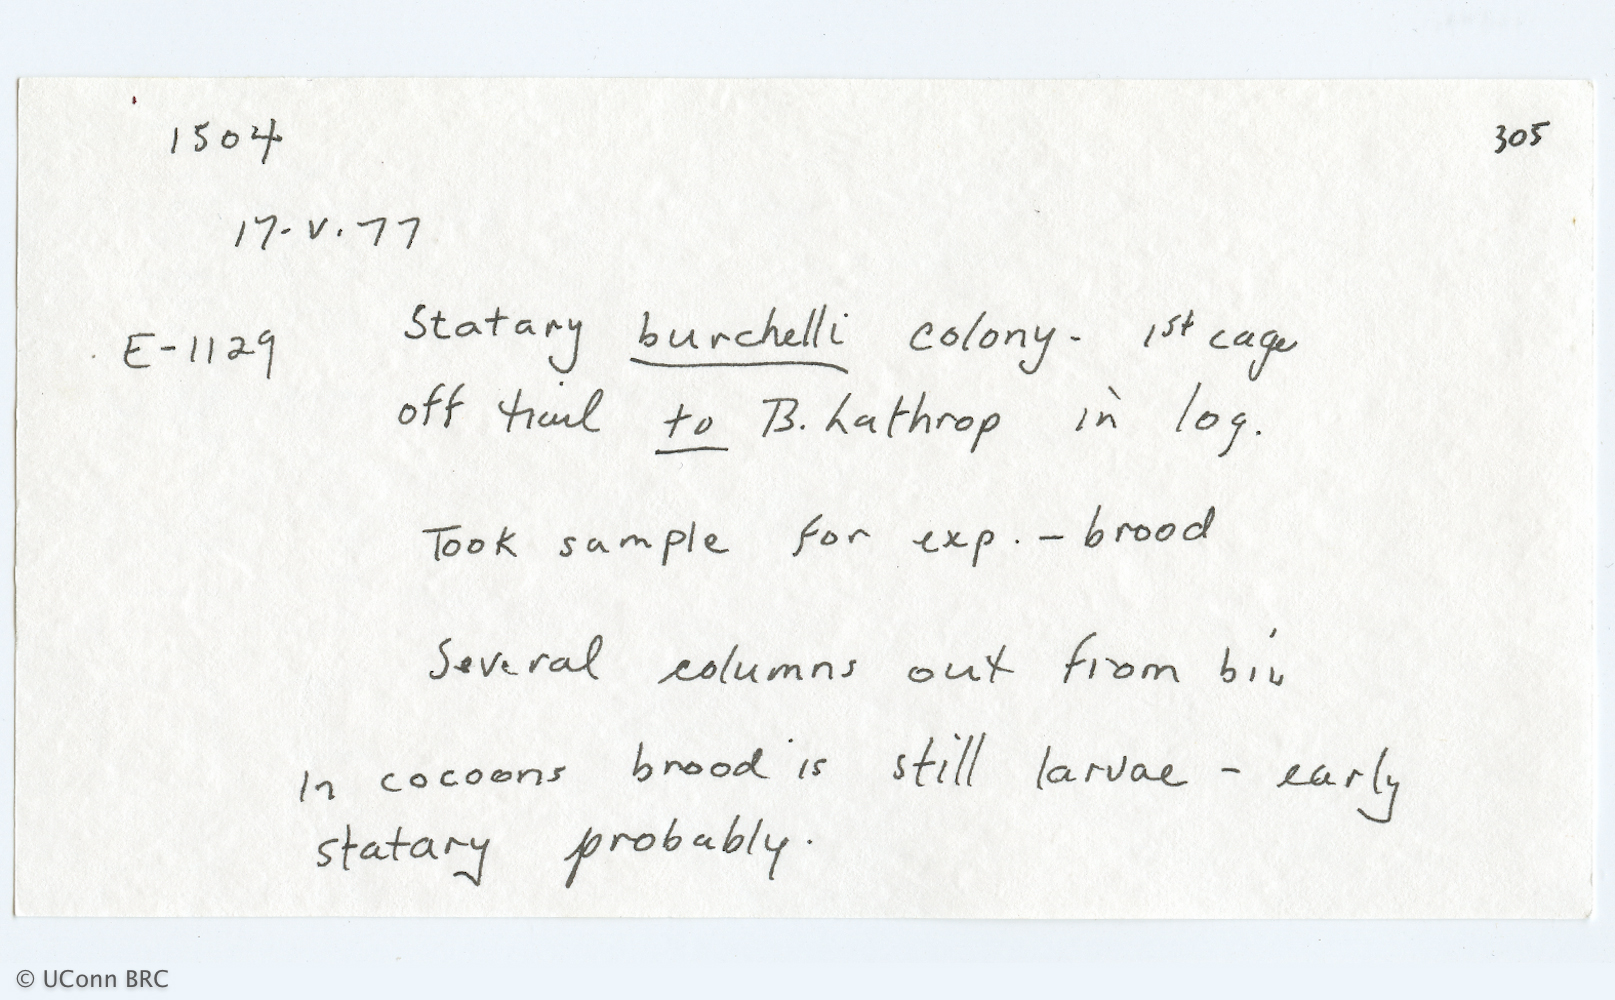 1504
305
17-V.77
E-1129 Statary burchelli colony - 1st cage
off trail to B. Lathrop in log.
Took sample for exp. - brood
Several columns out from biv
In cocoons brood is still larvae - early
statary probably.
© UConn BRC